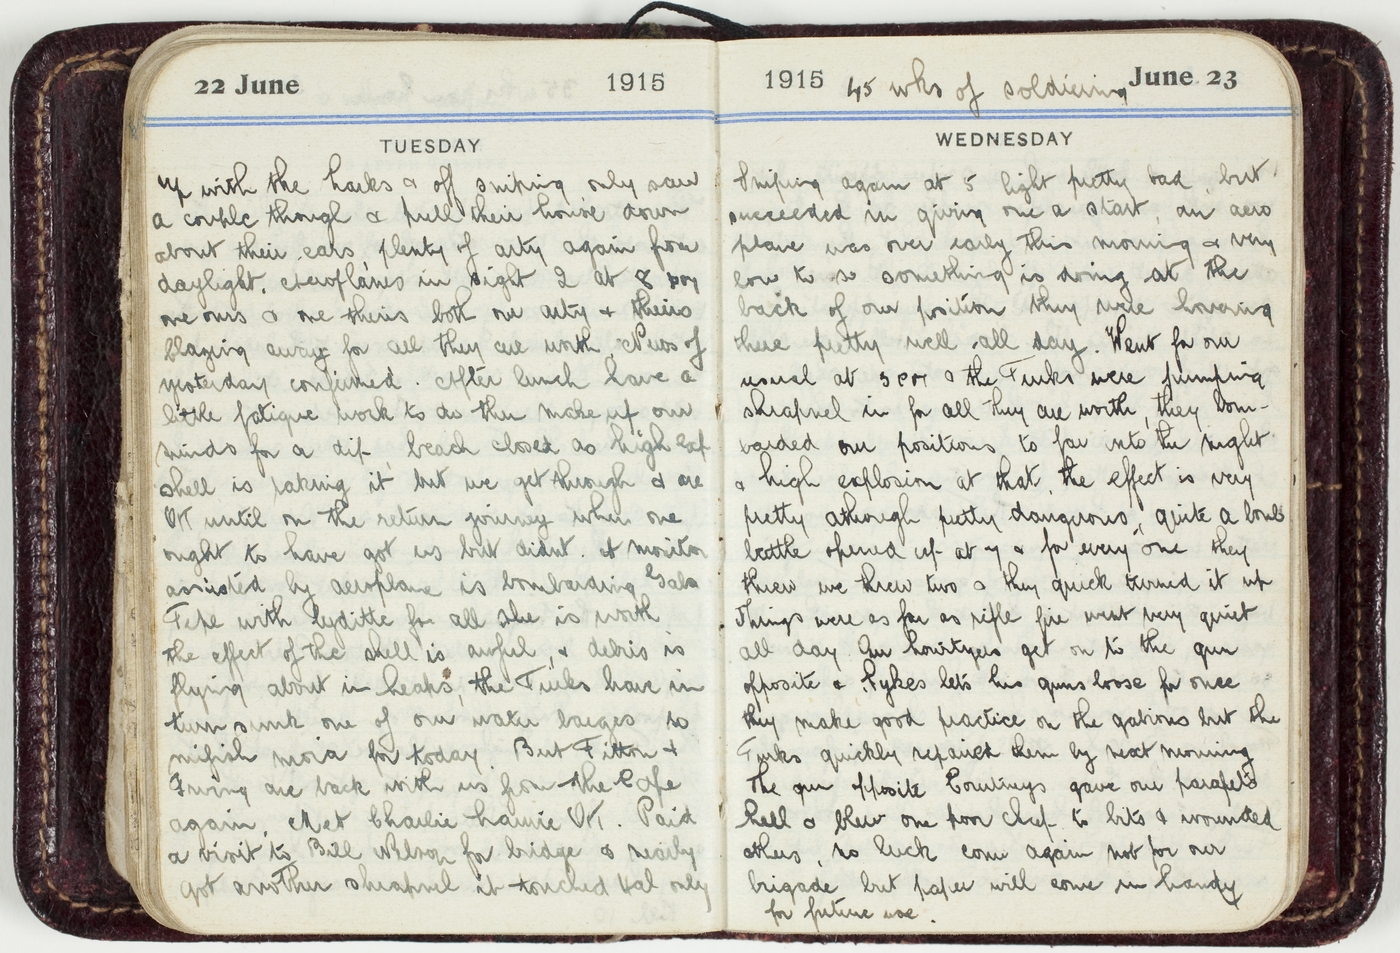 22 June 1915
TUESDAY
Up with the larks & off sniping only saw
a couple though & pull their house down
about their ears, plenty of arty again from
daylight. Aeroplanes in sight 2 at 8
one ours & one theirs both our arty & theirs
blazing away for all they are worth, News of
yesterday confirmed. After lunch have a
little fatigue work to do then make up our
minds for a dip beach closed as high exp
shell is raking it but we get through & are
OK until on the return journey when one
ought to have got us but didnt. A monitor
assisted by aeroplane is bombarding Gaba
Tepe with lyditte for all she is worth
the effect of the shell is awful, & debris is
flying about in heaps, the Turks have in
turn sunk one of our water barges so
for today. Bert Fitton &
Irving are back with us from the Cape
again, Met Charlie Lawrie OK. Paid
a visit to Bill Wilson for bridge & nearly
got another shrapnel it touched Hal only
1915 45 wks of soldiering June 23
WEDNESDAY
Sniping again at 5 light pretty bad, but
succeeded in giving one a start, an aero
plane was over early this morning & very
low to so something is doing at the
back of our position they were hovering
there pretty well all day. Went for our
usual at 3 & the Turks were pumping
shrapnel in for all they are worth, they bom-
barded our positions to far into the night
& high explosion at that, the effect is very
pretty athough pretty dangerous, quite a bomb
battle opened up at 7 & for every one they
threw we threw two & they quick turned it up
Things were as far as rifle fire went very quiet
all day. Our howitzers get on to the gun
opposite & Sykes lets his guns loose for once
they make good practice on the gabions but the
Turks quickly repaired them by next morning
The gun opposite Courtneys gave our parapets
hell & blew one poor chap to bits & wounded
others, no luck come again not for our
brigade but paper will come in handy
for future use.